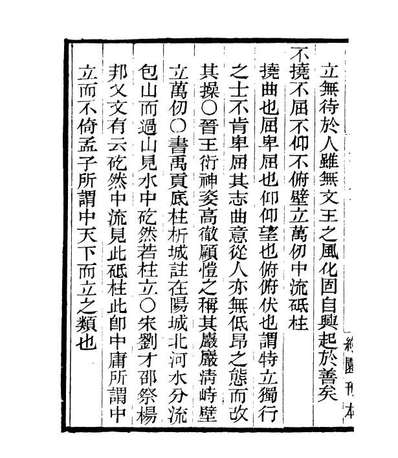 立無待於人雖無文王之風化固自興起於善矣
不撓不屈不仰不俯壁立萬仞中流砥柱
撓曲也屈卑屈也仰仰望也俯俯伏也謂特立獨行
之士不肯卑屈其志曲意從人亦無低昂之態而改
其操○晉王衍神姿高徹顧愷之稱其巖巖淸峙壁
立萬仞○書禹貢底柱析城註在陽城北河水分流
包山而過山見水中矻然若柱立○宋劉才邵祭楊
邦乂文有云矻然中流見此砥柱此卽中庸所謂中
立而不倚孟子所謂中天下而立之類也
園刊本